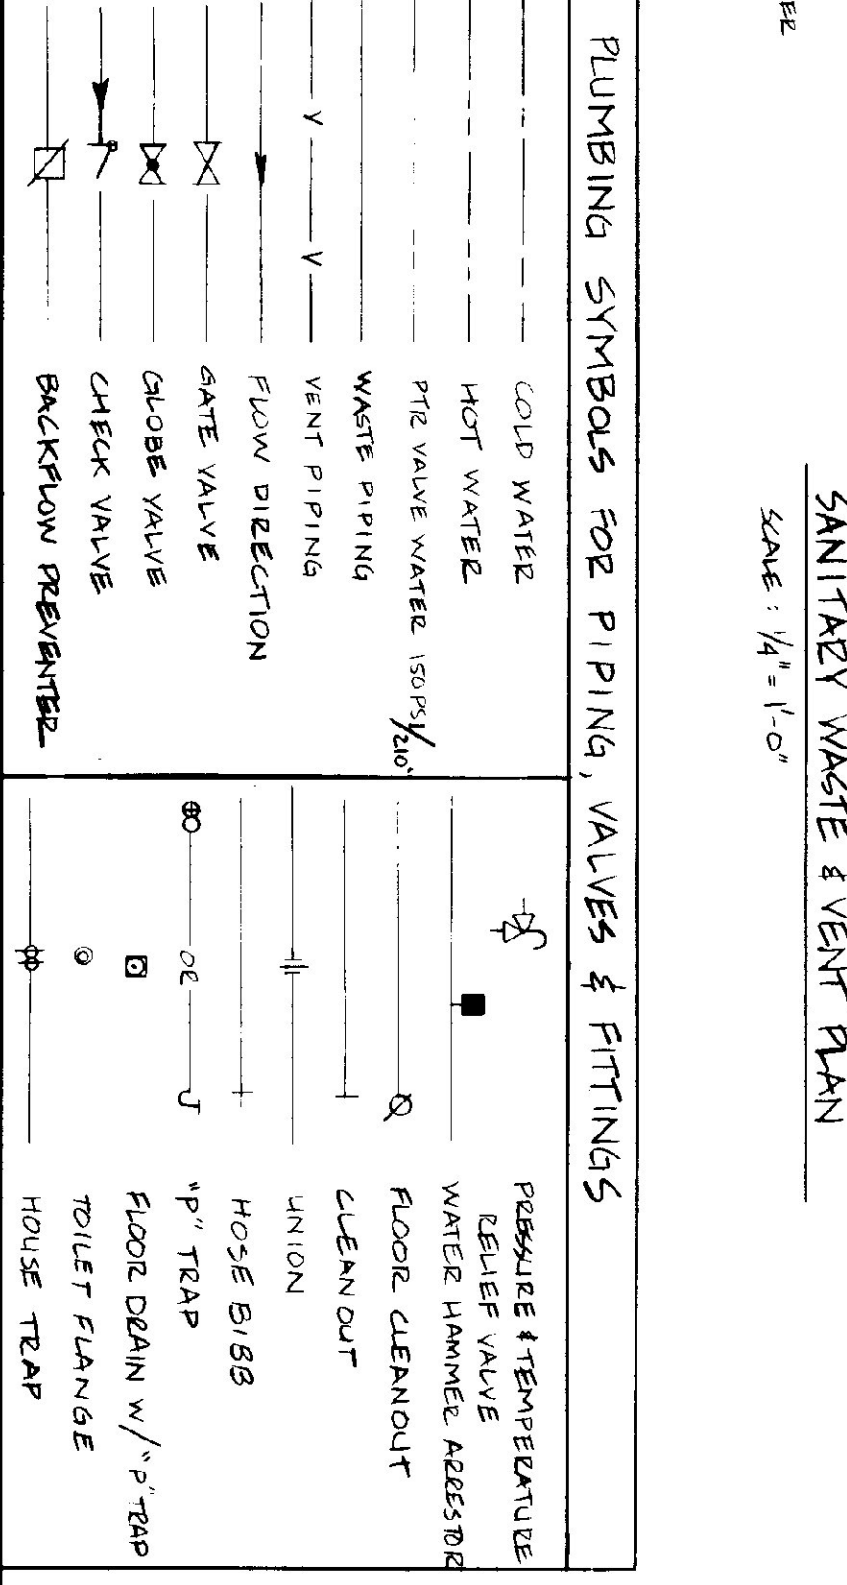 ER
SANITARY WASTE & VENT PLAN
SCALE : 1/4" = 1'-0"
PLUMBING SYMBOLS FOR PIPING, VALVES & FITTINGS
COLD WATER
HOT WATER
PTR VALVE WATER 150PSI/210°
WASTE PIPING
V V VENT PIPING
FLOW DIRECTION
GATE VALVE
GLOBE VALVE
CHECK VALVE
BACKFLOW PREVENTER
PRESSURE & TEMPERATURE
RELIEF VALVE
WATER HAMMER ARRESTOR
FLOOR CLEANOUT
CLEANOUT
UNION
HOSE BIBB
OR "P" TRAP
FLOOR DRAIN W/ "P" TRAP
TOILET FLANGE
HOUSE TRAP